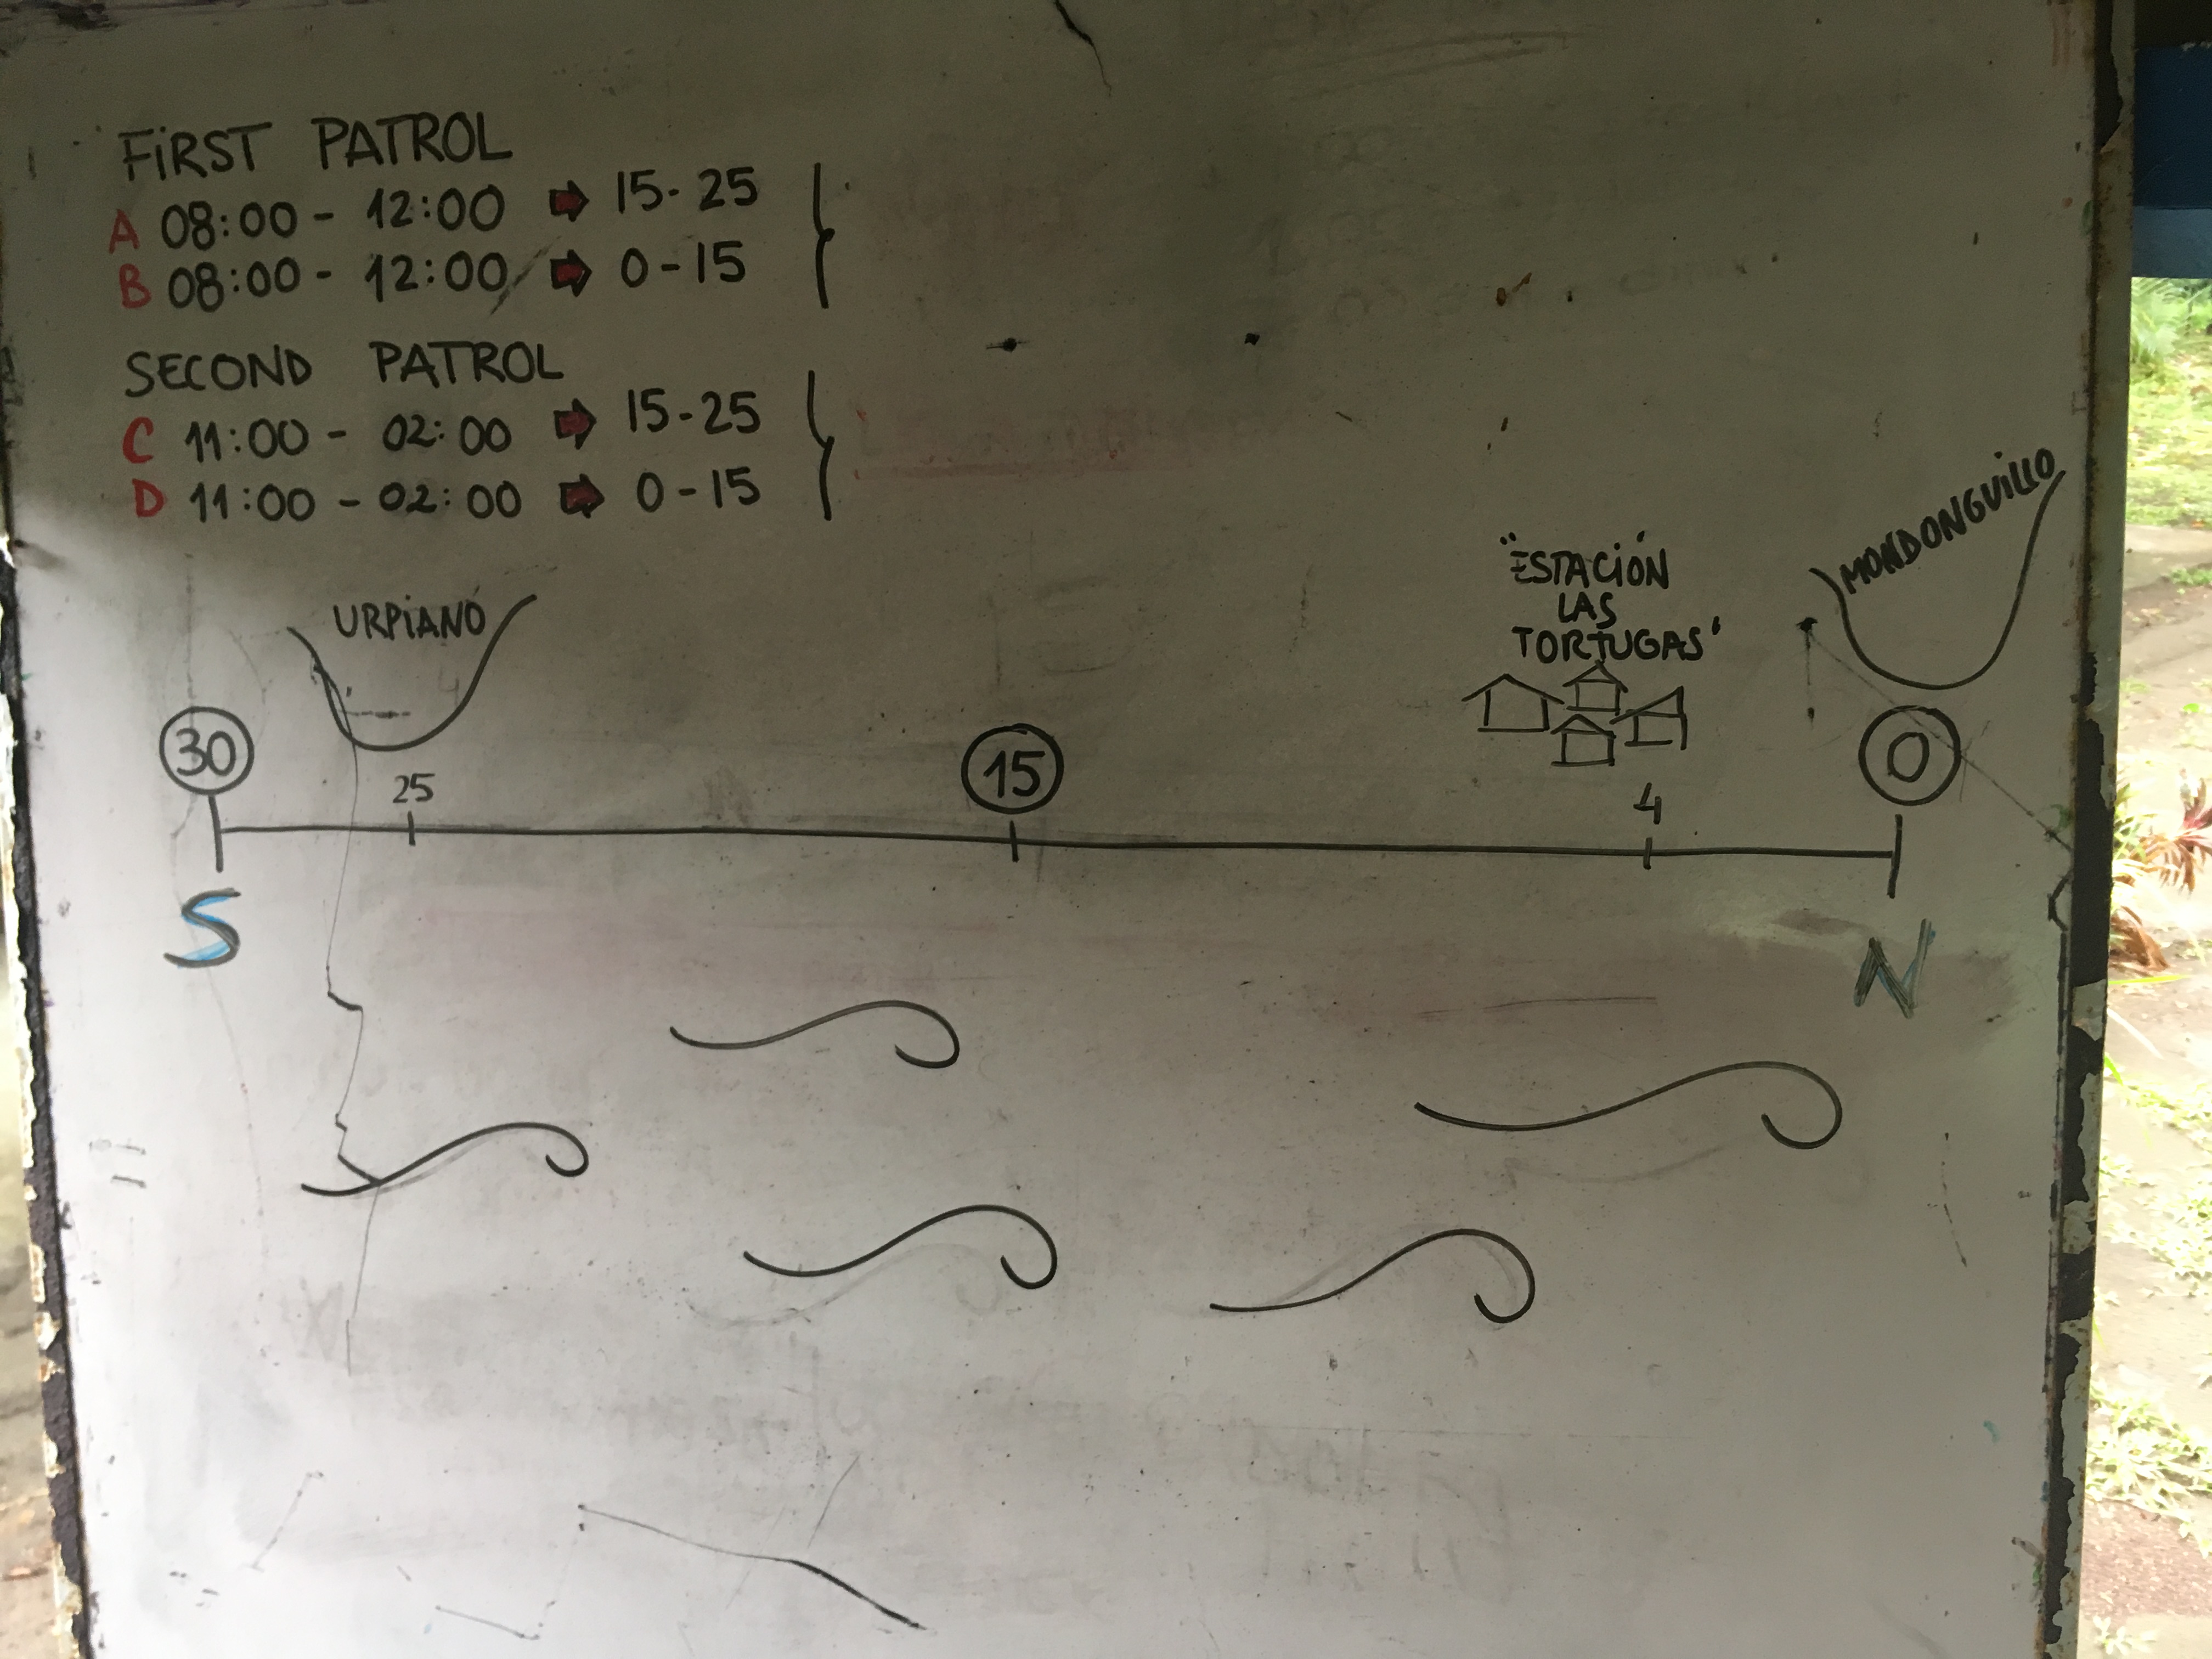 FiRST PATROL
A 08:00 - 12:00 ➡ 15-25
B 08:00 - 12:00 ➡ 0-15
SECOND PATROL
C 11:00 - 02:00 ➡ 15-25
D 11:00 - 02:00 ➡ 0-15
URPiANO
"ESTACiÓN
LAS
TORTUGAS"
MONDONGUiLLO
30
25
15
4
0
S
N